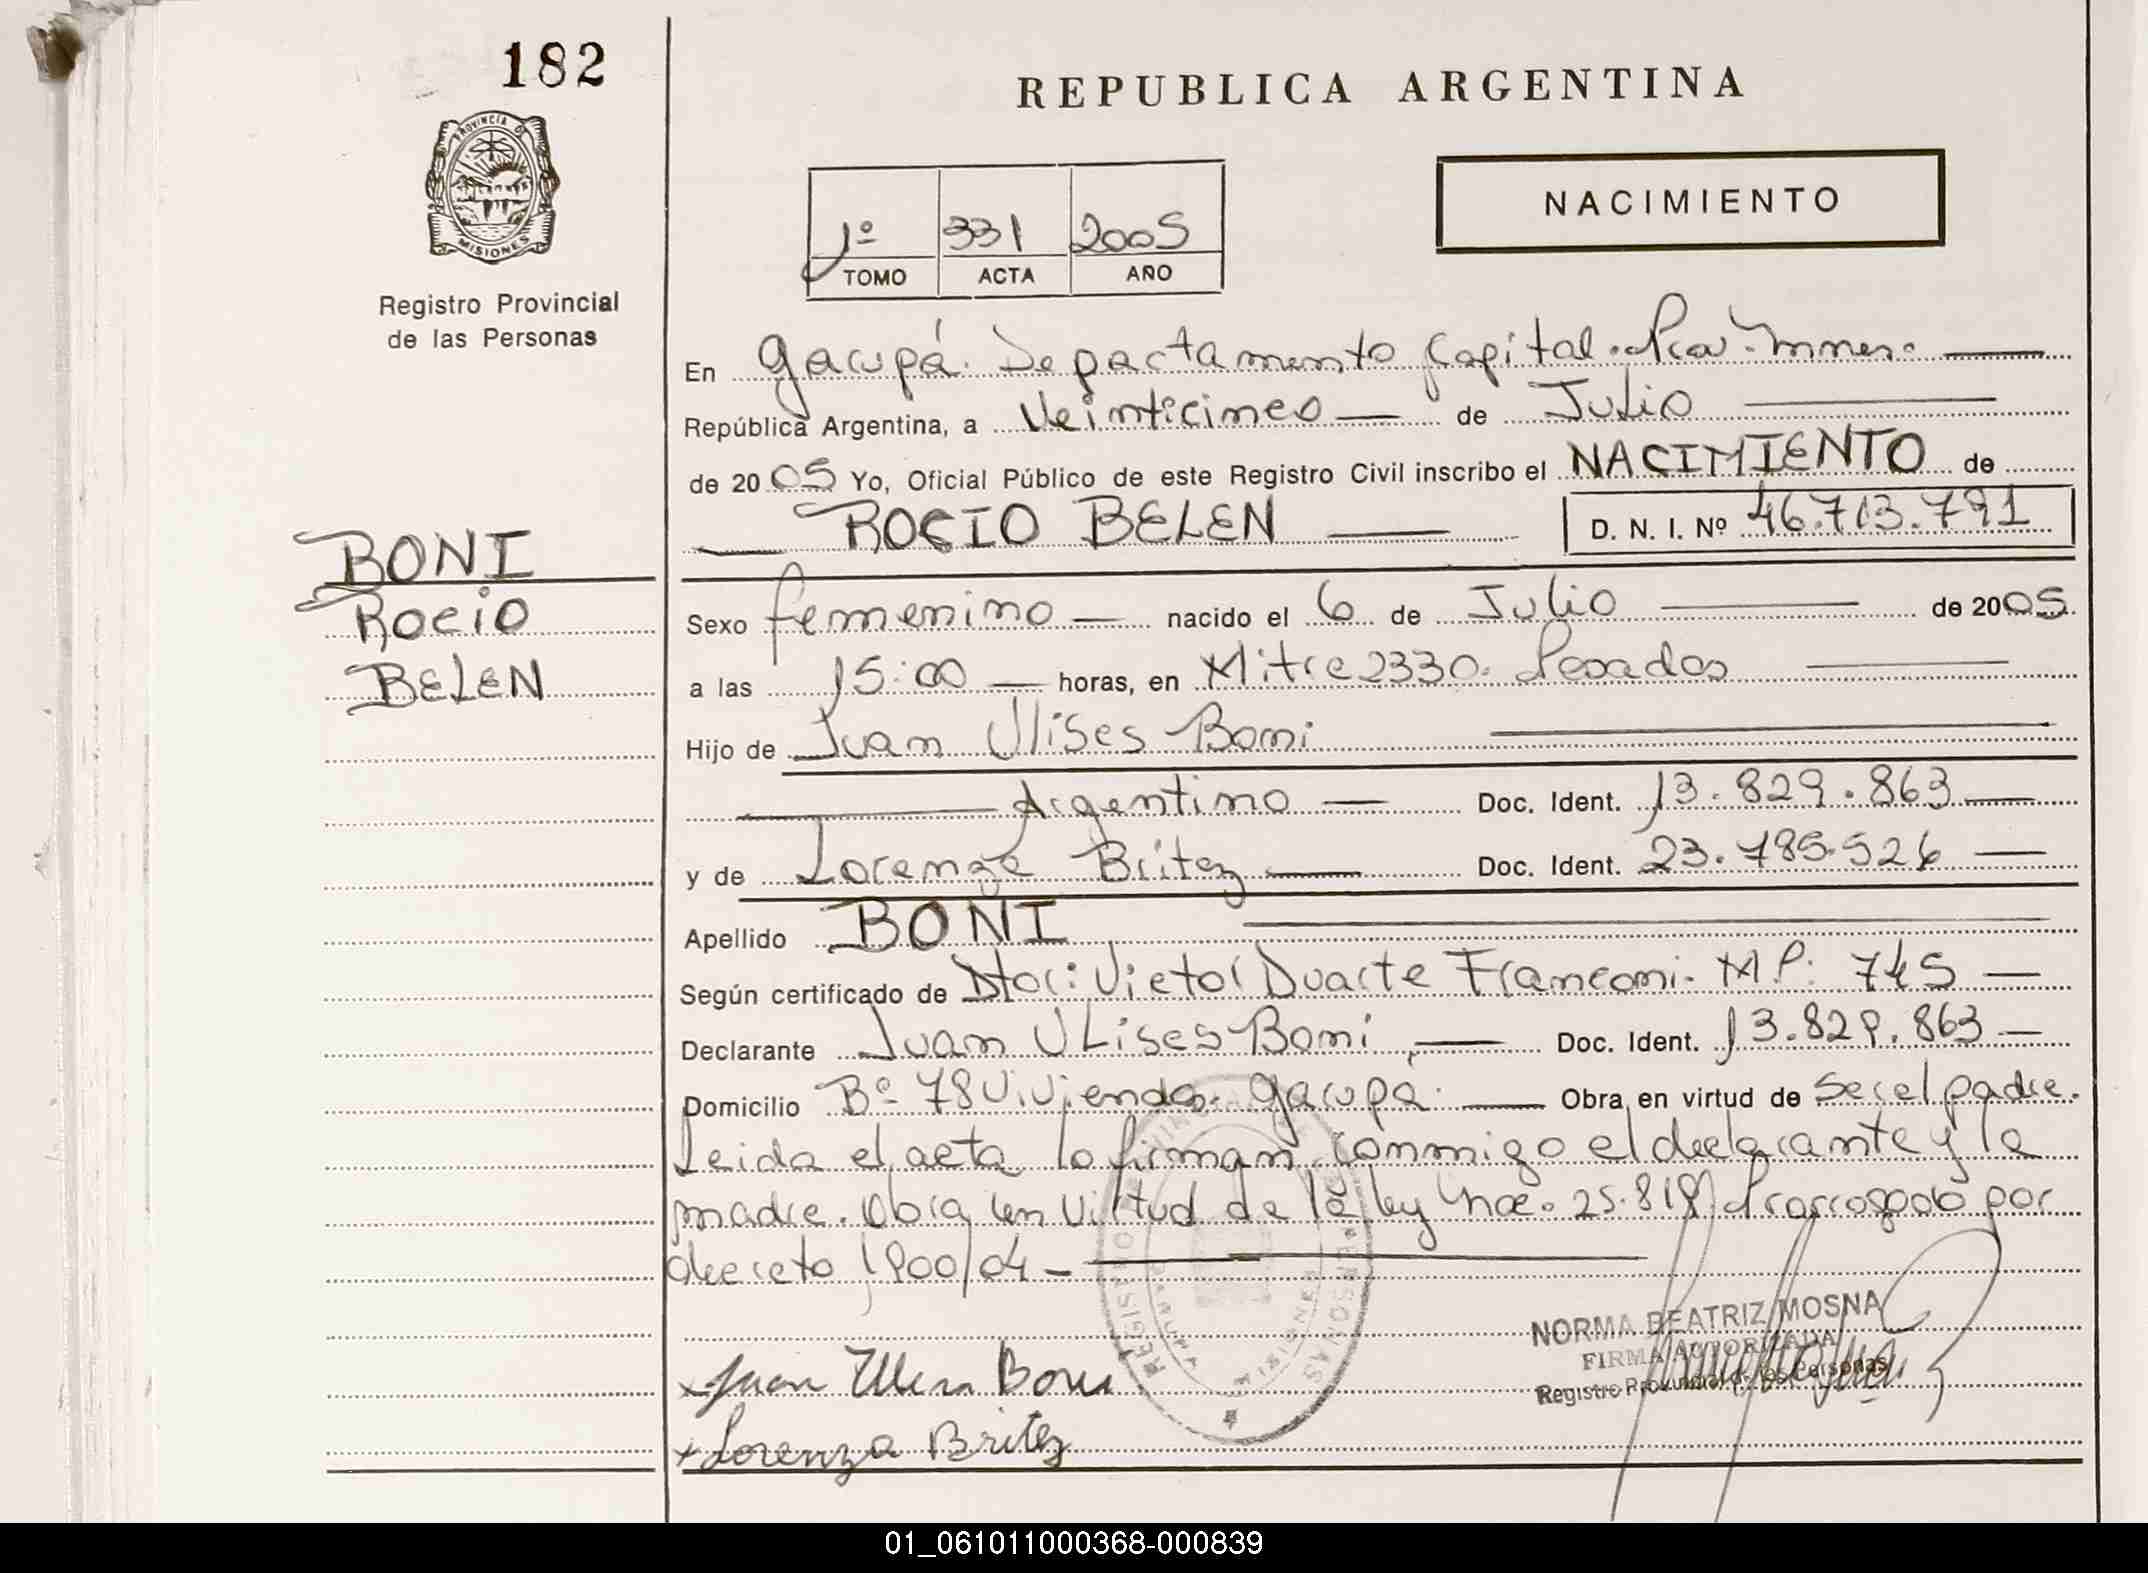 182
REPUBLICA ARGENTINA
PROVINCIA DE
MISIONES
NACIMIENTO
1º 331 2005
TOMO ACTA AÑO
Registro Provincial
de las Personas
En Garupá. Departamento Capital. Pcia. Mnes.
República Argentina, a Veinticinco de Julio
de 2005 Yo, Oficial Público de este Registro Civil inscribo el NACIMIENTO de
ROCIO BELEN D. N. I. Nº 46.713.791
BONI
Rocio
BELEN
Sexo femenino nacido el 6 de Julio de 2005
a las 15:00 horas, en Mitre 2330. Posadas
Hijo de Juan Ulises Boni
Argentino Doc. Ident. 13.829.863
y de Lorenza Britez Doc. Ident. 23.785.526
Apellido BONI
Según certificado de Dtor: Victor Duarte Franconi. M.P: 745
Declarante Juan Ulises Boni Doc. Ident. 13.829.863
Domicilio Bº 78 Viviendas. Garupá. Obra en virtud de Ser el padre.
Leida el acta lo firman conmigo el declarante y la
madre. Obra en virtud de la ley 25.819 Prorrogado por
decreto 1900/04
NORMA BEATRIZ MOSNA
FIRMA AUTORIZADA
Registro Provincial de las Personas
Juan Ulises Boni
Lorenza Britez
01_061011000368-000839